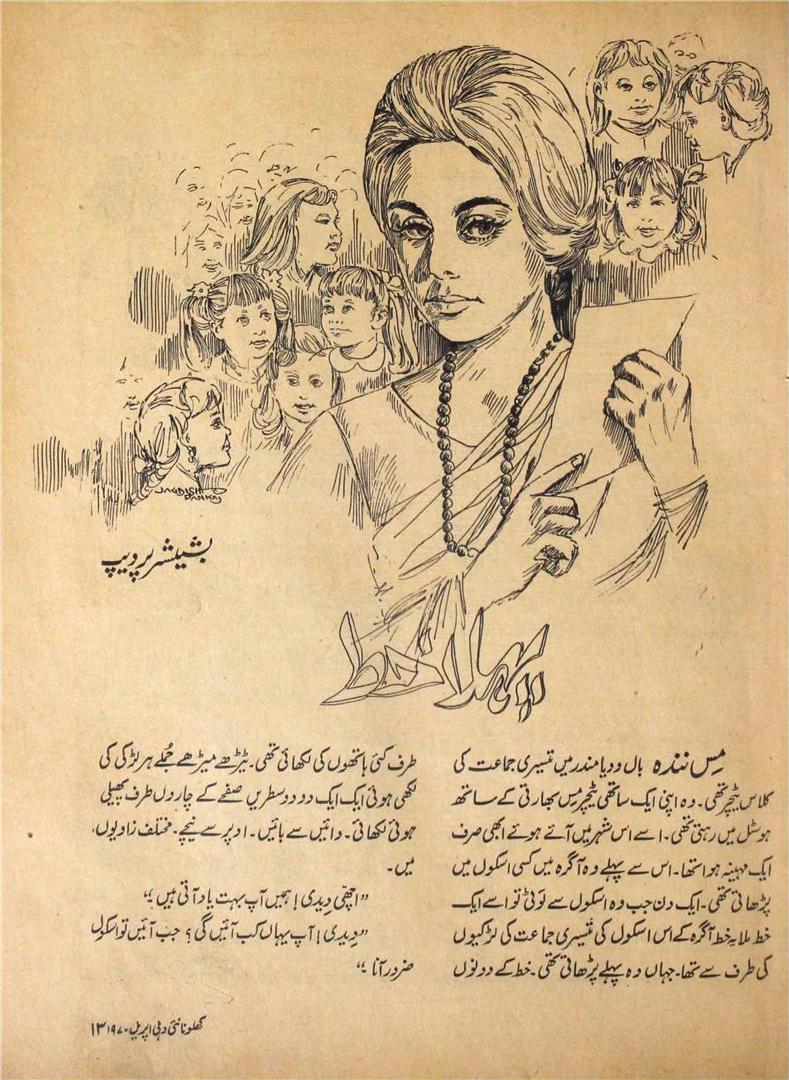 JAGDISH
PANKAJ
بشیشر پردیپ
پہلا خط
مِس نندہ بال ودیا مندر میں تیسری جماعت کی
کلاس ٹیچر تھی۔ وہ اپنی ایک ساتھی ٹیچر مِس بھارتی کے ساتھ
ہوسٹل میں رہتی تھی۔ اسے اس شہر میں آتے ہوئے ابھی صرف
ایک مہینہ ہوا تھا۔ اس سے پہلے وہ آگرہ میں کسی اسکول میں
پڑھاتی تھی۔ ایک دن جب وہ اسکول سے لوٹی تو اسے ایک
خط ملا یہ خط آگرہ کے اس اسکول کی تیسری جماعت کی لڑکیوں
کی طرف سے تھا۔ جہاں وہ پہلے پڑھاتی تھی۔ خط کے دونوں
طرف کئی ہاتھوں کی لکھائی تھی۔ ٹیڑھے میڑھے جُملے ہر لڑکی کی
لکھی ہوئی ایک ایک دو دو سطریں صفحے کے چاروں طرف پھیلی
ہوئی لکھائی۔ دائیں سے بائیں۔ اوپر سے نیچے۔ مختلف زاویوں،
میں۔
”اچھی دِیدی! ہمیں آپ بہت یاد آتی ہیں۔“
”دِیدی! آپ یہاں کب آئیں گی؟ جب آئیں تو اسکول
ضرور آنا۔“
کھلونا نئی دہلی اپریل ۱۹۷۰ ۱۳